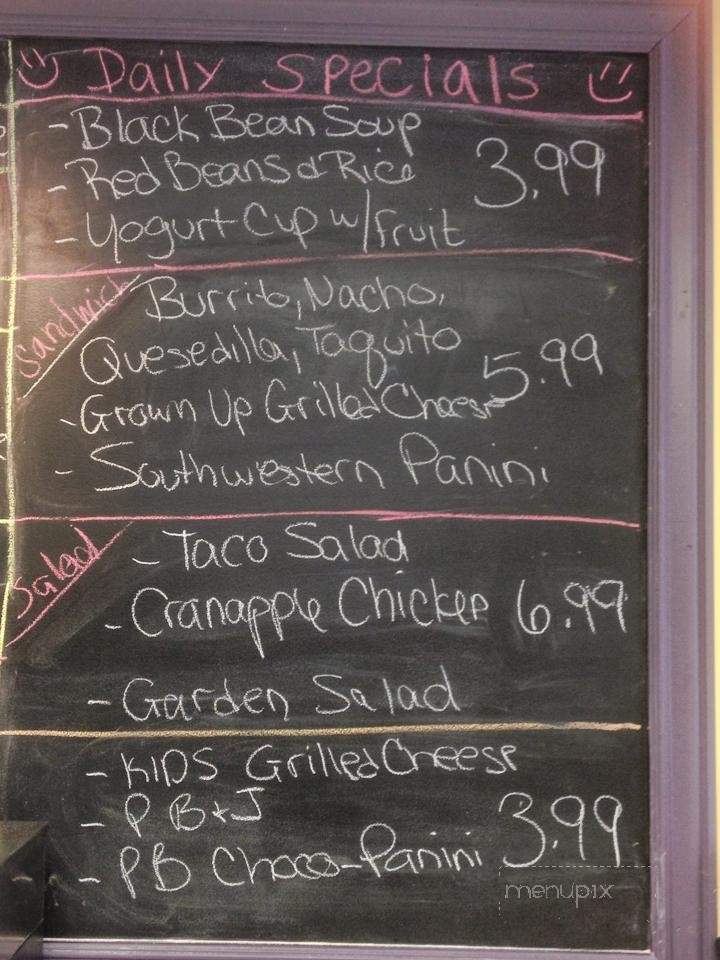 Daily Specials
- Black Bean Soup
- Red Beans & Rice
3.99
- Yogurt Cup w/Fruit
Sandwich
Burrito, Nacho,
Quesedilla, Taquito
5.99
- Grown Up Grilled Cheese
- Southwestern Panini
Salad
- Taco Salad
- Cranapple Chicken 6.99
- Garden Salad
- KIDS Grilled Cheese
- PB & J
3.99
- PB Choco-Panini
menupix